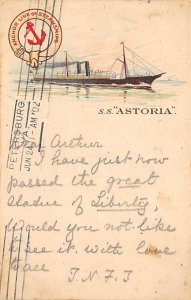 ANCHOR LINE OF STEAMSHIPS
S.S. "ASTORIA".
PETERSBURG
VA
JUN 24
1-AM '02
Dear Arthur
I have just now
passed the great
statue of Liberty,
would you not like
to see it. with love
to all